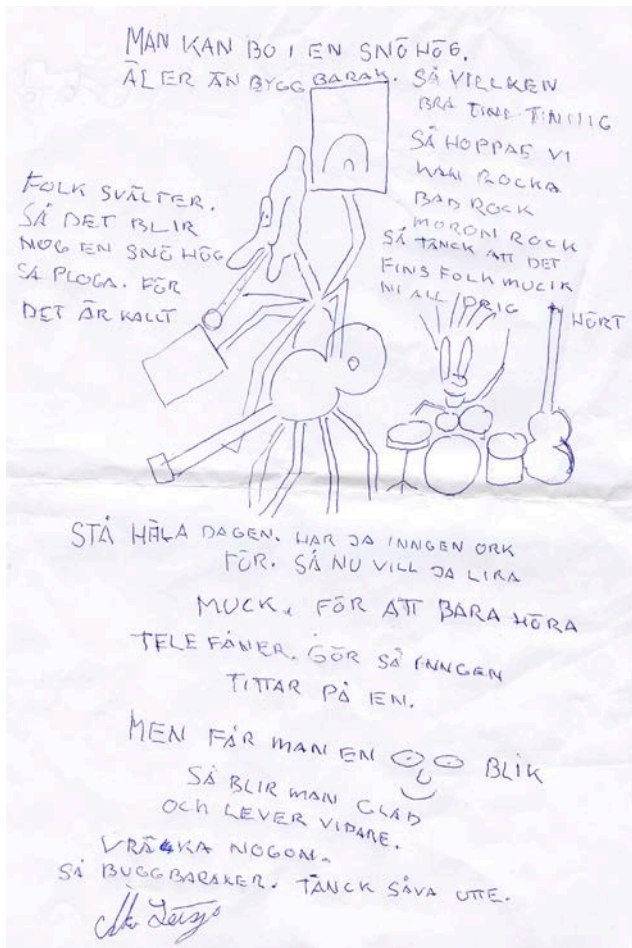 MAN KAN BO I EN SNÖHÖG.
ÄLER ÄN BYGG BARAK. SÅ VILLKEN
BRA
SÅ HOPPAS VI
KAN ROCKA
BAD ROCK
MORON ROCK
SÅ TÄNCK ATT DET
FINS FOLK MUCIK
NI ALLDRIG
HÖRT
FOLK SVÄLTER.
SÅ DET BLIR
NOG EN SNÖHÖG
SÅ PLOGA. FÖR
DET ÄR KALLT
STÅ HÄLA DAGEN. HAR JA INNGEN ORK
FÖR. SÅ NU VILL JA LIRA
MUCK. FÖR ATT BARA HÖRA
TELEFÅNER. GÖR SÅ INNGEN
TITTAR PÅ EN.
MEN FÅR MAN EN BLIK
SÅ BLIR MAN GLAD
OCH LEVER VIDARE.
NOGON.
SÅ BYGGBARAKER. TÄNCK SÅVA UTE.